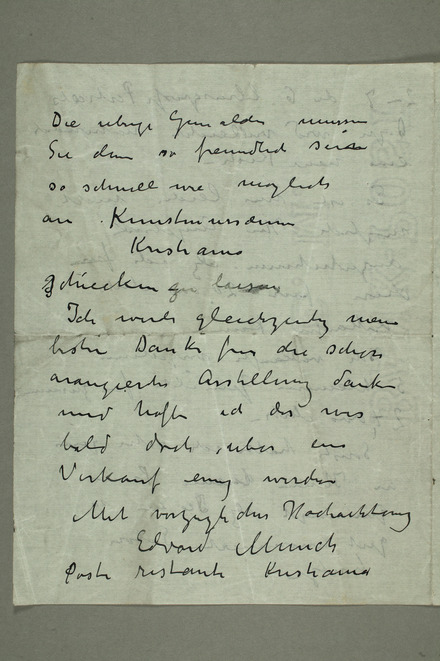 Die ubrige Gemalde mussen
Sie dann so freundlich sein
so schnell wie moglich
an Kunstmuseum
Kristiania
schicken zu lassen
Ich werde gleichzeitig meine
besten Dank fur die schön
arangierte Ausstellung danken
und hoffe ich das wir
bald doch uber ein
Verkauf einig werden
Mit vorzüglicher Hochachtung
Edvard Munch
Poste restante Kristiania